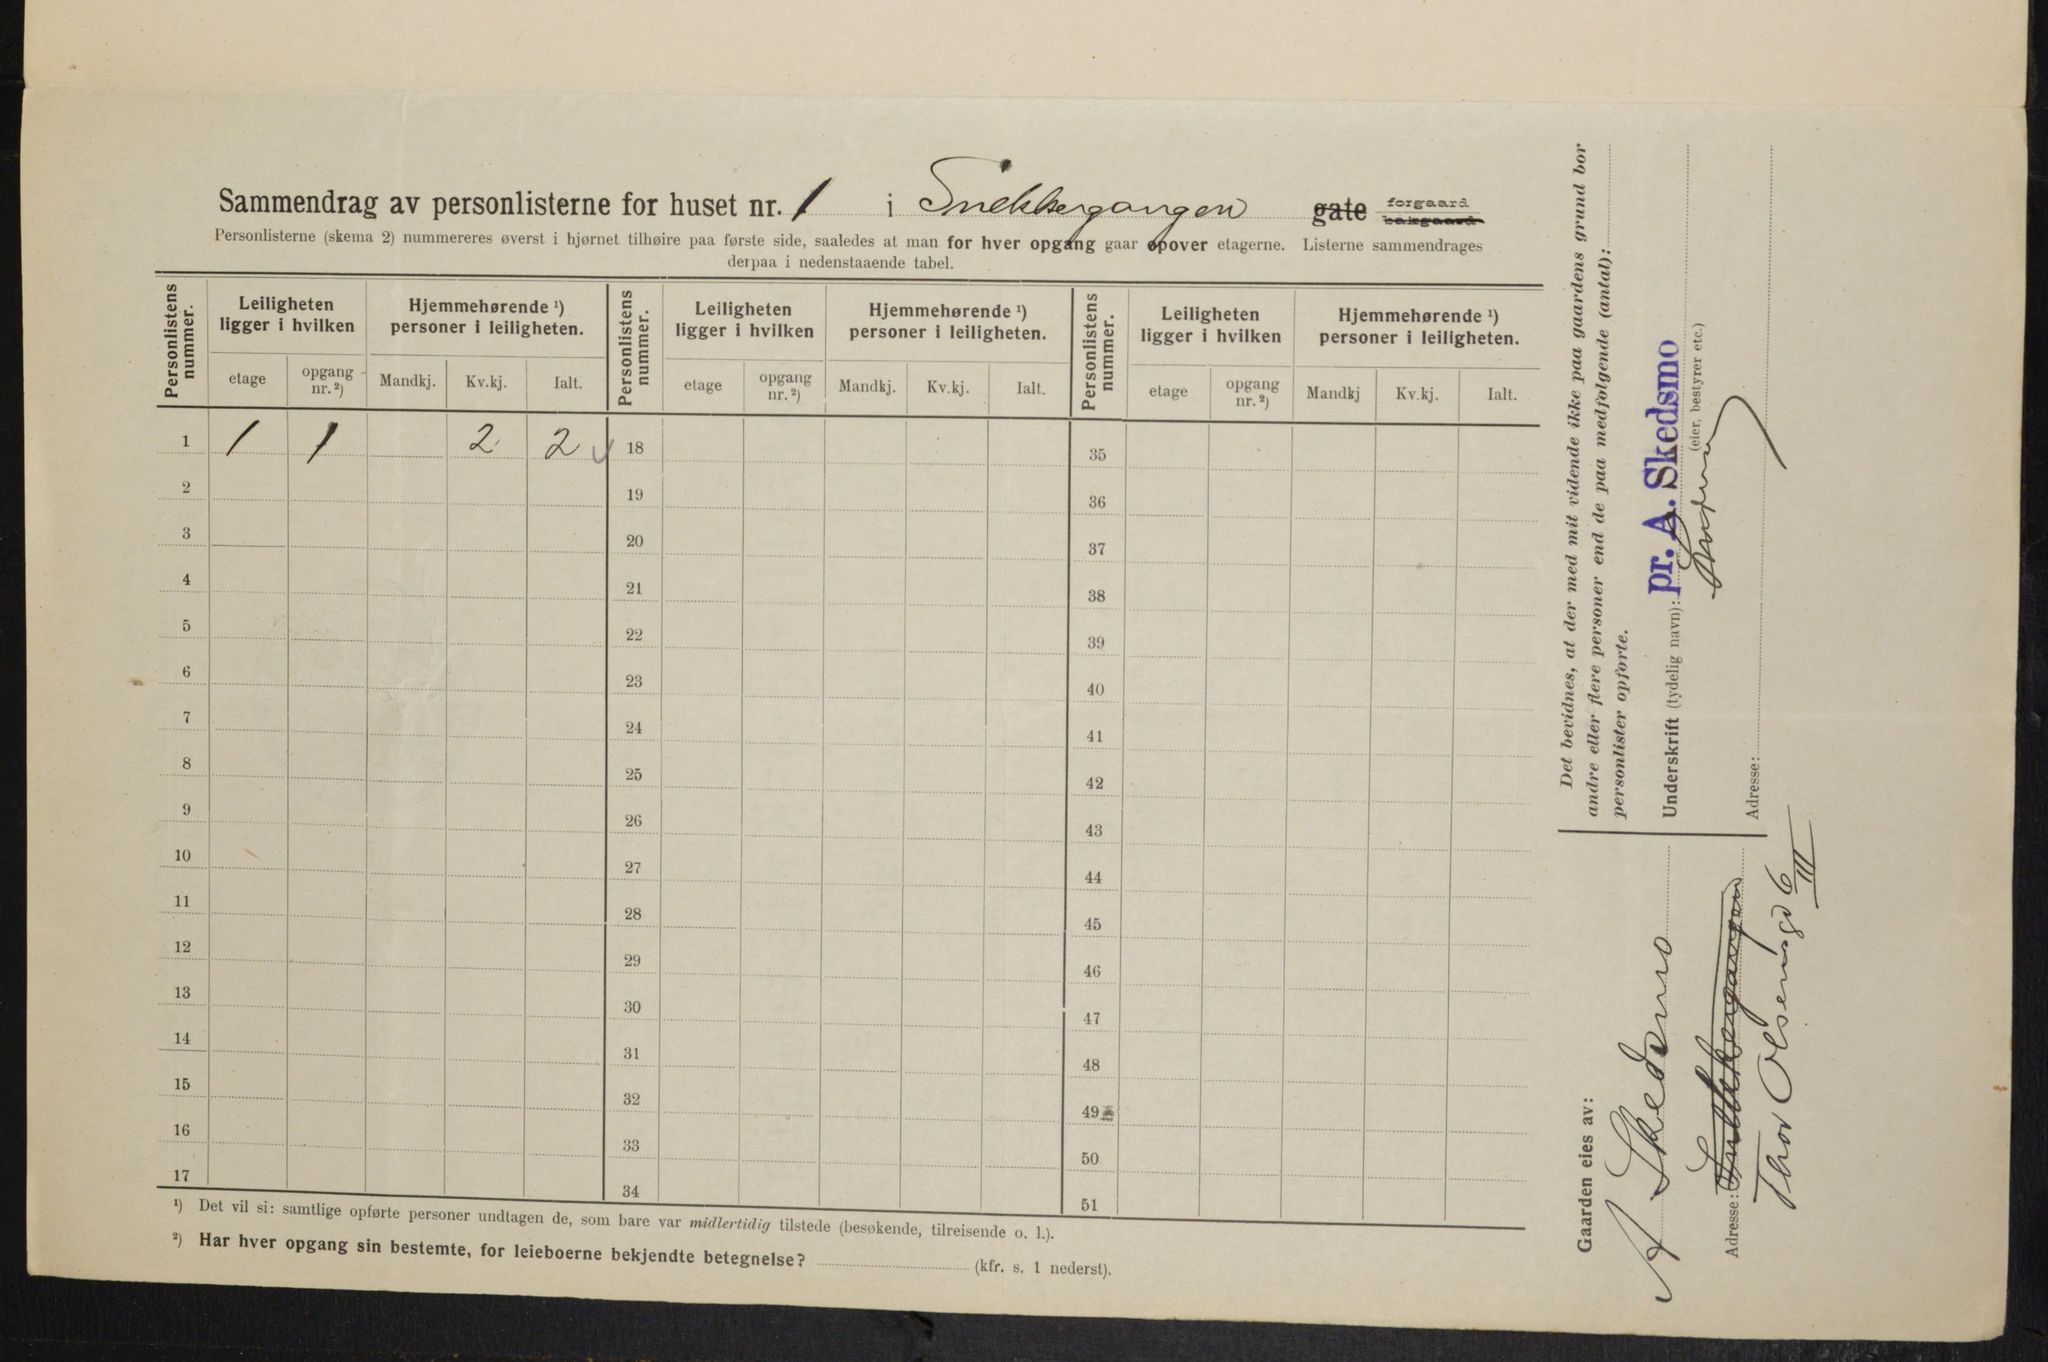 Sammendrag av personlisterne for huset nr. 1 i Snekkergangen gate forgaard bakgaard
Personlisterne (skema 2) nummereres øverst i hjørnet tilhøire paa første side, saaledes at man for hver opgang gaar opover etagerne. Listerne sammendrages
derpaa i nedenstaaende tabel.
Personlistens nummer. Leiligheten ligger i hvilken Hjemmehørende ¹) personer i leiligheten. Personlistens nummer. Leiligheten ligger i hvilken Hjemmehørende ¹) personer i leiligheten. Personlistens nummer. Leiligheten ligger i hvilken Hjemmehørende ¹) personer i leiligheten.
etage opgang nr. ²) Mandkj. Kv.kj. Ialt. etage opgang nr. ²) Mandkj. Kv.kj. Ialt. etage opgang nr. ²) Mandkj Kv.kj. Ialt.
1 1 1 2 2 18 35
2 19 36
3 20 37
4 21 38
5 22 39
6 23 40
7 24 41
8 25 42
9 26 43
10 27 44
11 28 45
12 29 46
13 30 47
14 31 48
15 32 49
16 33 50
17 34 51
¹) Det vil si: samtlige opførte personer undtagen de, som bare var midlertidig tilstede (besøkende, tilreisende o. l.).
²) Har hver opgang sin bestemte, for leieboerne bekjendte betegnelse? (kfr. s. 1 nederst).
Det bevidnes, at der med mit vidende ikke paa gaardens grund bor
andre eller flere personer end de paa medfølgende (antal):
personlister opførte.
Underskrift (tydelig navn): pr. A. Skedsmo
(eier, bestyrer etc.)
Adresse:
Gaarden eies av:
A Skedsmo
Adresse: Snekkergangen
Thor Olsensgd 6
III